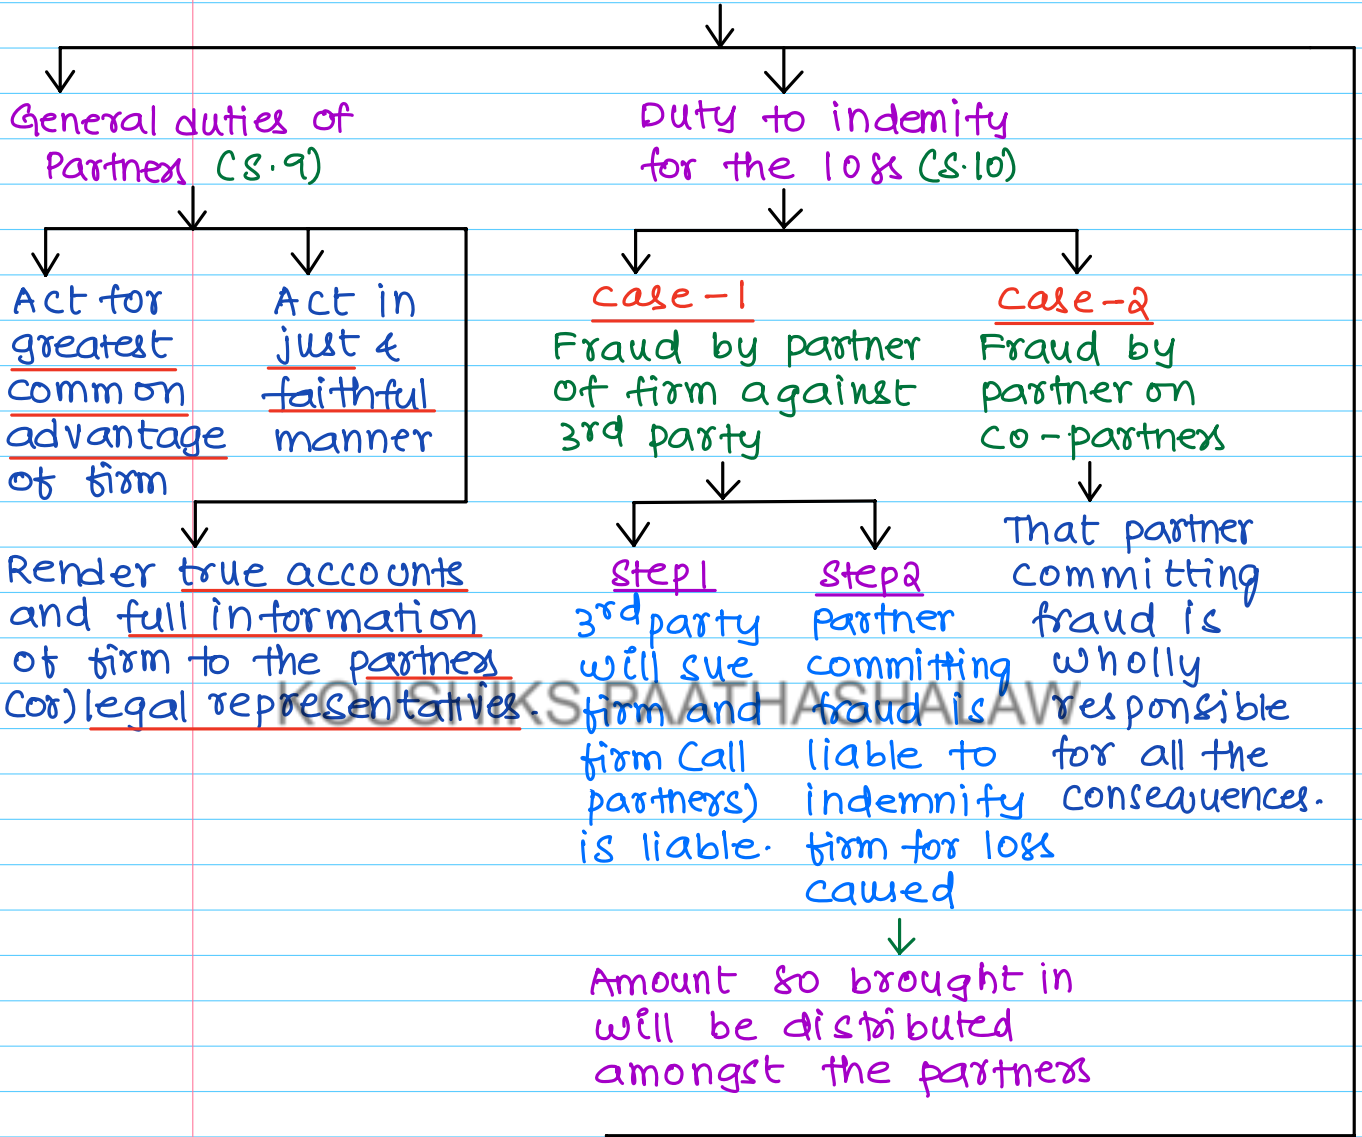 General duties of
Partners (S.9)
Act for
greatest
common
advantage
of firm
Act in
just &
faithful
manner
Render true accounts
and full information
of firm to the partners
(or) legal representatives.
Duty to indemify
for the loss (S.10)
Case-1
Fraud by partner
of firm against
3rd party
Step1
3rd party
will sue
firm and
firm (all
partners)
is liable.
Step2
Partner
committing
fraud is
liable to
indemnify
firm for loss
caused
Amount so brought in
will be distributed
amongst the partners
Case-2
Fraud by
partner on
co-partners
That partner
committing
fraud is
wholly
responsible
for all the
consequences.
KOUSHIKS PAATHASHALAW